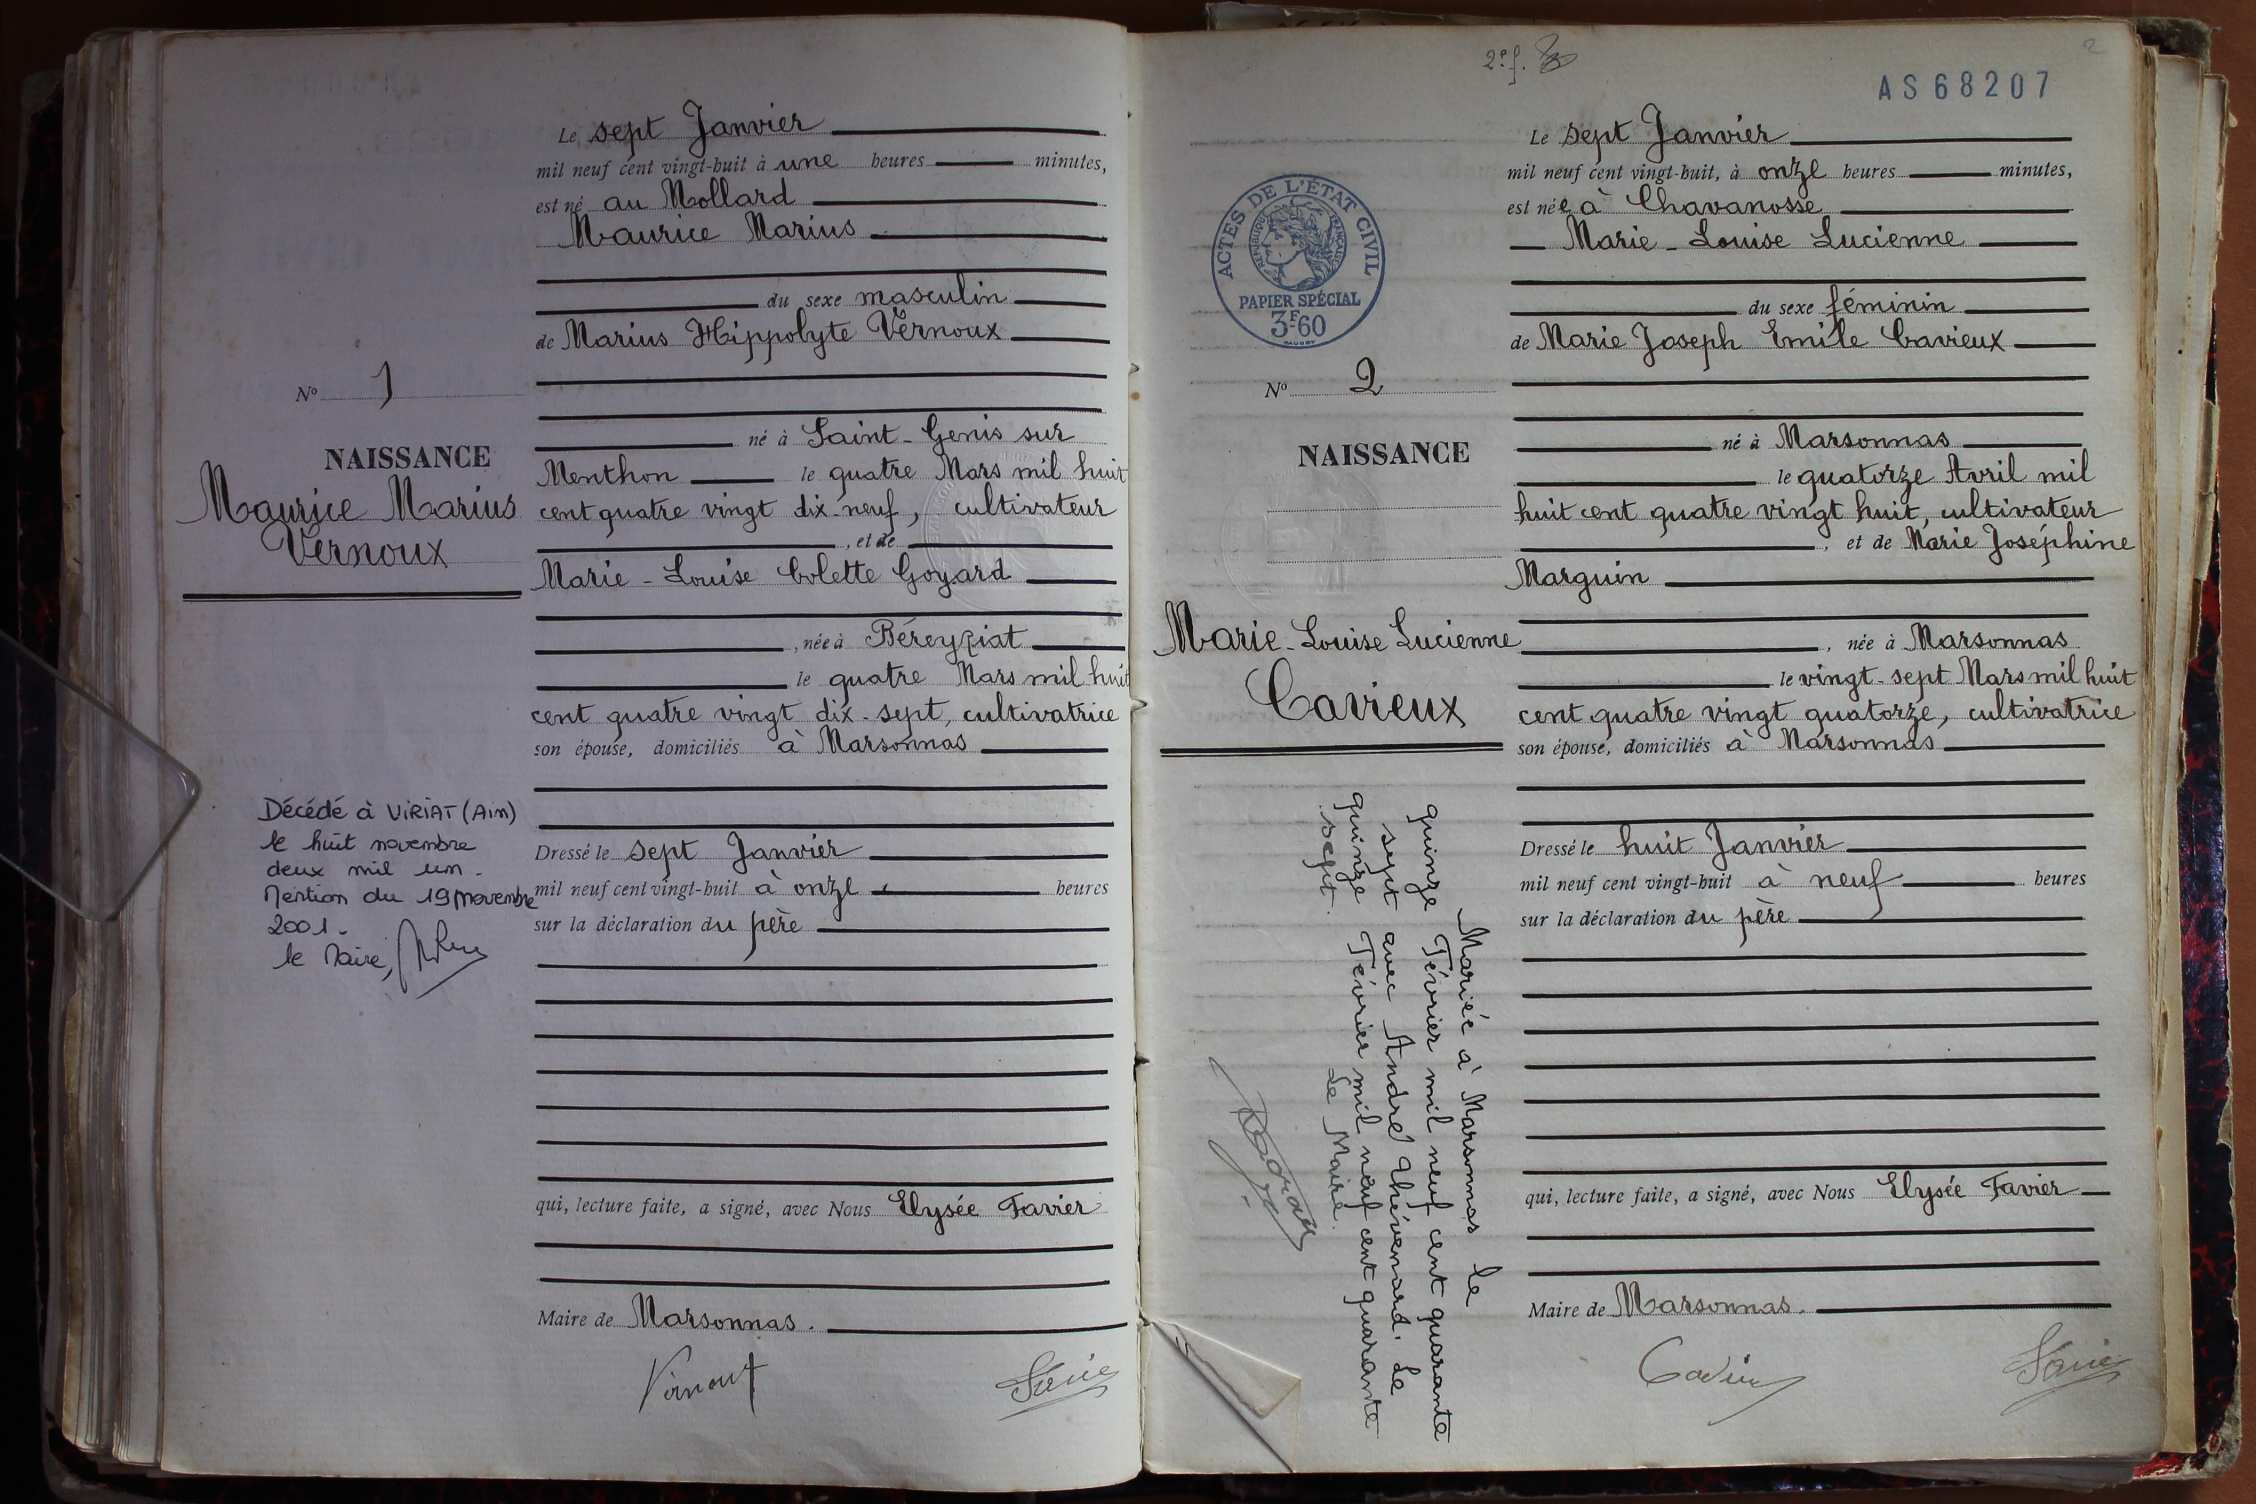 Le sept Janvier
mil neuf cent vingt-huit à une heures minutes,
est né au Mollard
Maurice Marius
du sexe masculin
de Marius Hippolyte Vernoux
No 1
né à Saint-Genis sur
NAISSANCE
Menthon le quatre Mars mil huit
Maurice Marius
Vernoux
cent quatre vingt dix-neuf, cultivateur
, et de
Marie-Louise Colette Goyard
, née à Béreyziat
le quatre Mars mil huit
cent quatre vingt dix-sept, cultivatrice
son épouse, domiciliés à Marsonnas
Décédé à VIRIAT (Ain)
le huit novembre
deux mil un.
Mention du 19 novembre
2001.
le Maire,
Dressé le sept Janvier
mil neuf cent vingt-huit à onze heures
sur la déclaration du père
qui, lecture faite, a signé, avec Nous Elysée Favier
Maire de Marsonnas.
2
AS68207
Le sept Janvier
mil neuf cent vingt-huit, à onze heures minutes,
est née à Chavanosse
Marie-Louise Lucienne
ACTES DE L'ÉTAT CIVIL
RÉPUBLIQUE FRANÇAISE
PAPIER SPÉCIAL
3F60
du sexe féminin
de Marie Joseph Emile Cavieux
No 2
NAISSANCE
né à Marsonnas
le quatorze Avril mil
huit cent quatre vingt huit, cultivateur
, et de Marie Joséphine
Marguin
Marie-Louise Lucienne
Cavieux
, née à Marsonnas
le vingt-sept Mars mil huit
cent quatre vingt quatorze, cultivatrice
son épouse, domiciliés à Marsonnas
Mariée à Marsonnas le
quinze Février mil neuf cent quarante
sept avec André Thévenard. Le
quinze Février mil neuf cent quarante
sept.
Le Maire.
Dressé le huit Janvier
mil neuf cent vingt-huit à neuf heures
sur la déclaration du père
qui, lecture faite, a signé, avec Nous Elysée Favier
Maire de Marsonnas.